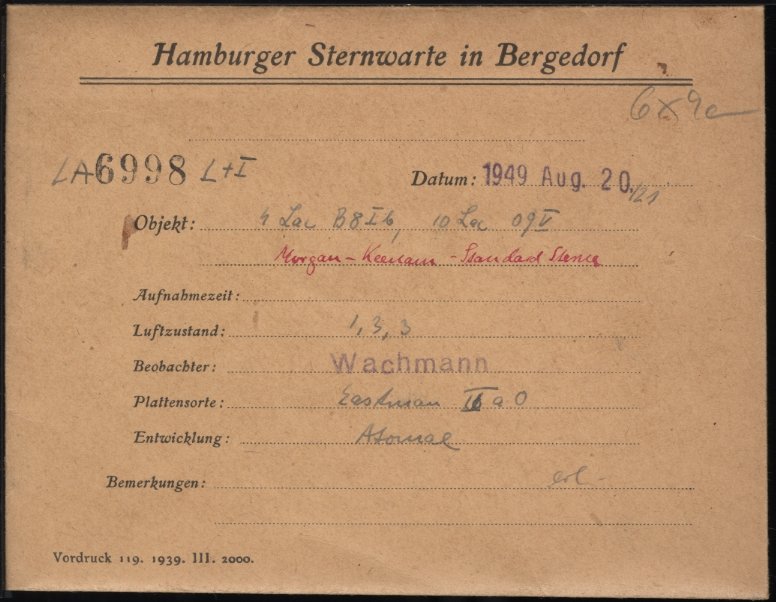 Hamburger Sternwarte in Bergedorf
6x9c
LA 6998 L+I Datum: 1949 Aug. 20./21
Objekt: 4 Lac B8Ib, 10 Lac O9V
Morgan-Keenan-Standard Sterne
Aufnahmezeit:
Luftzustand: 1, 3, 3
Beobachter: Wachmann
Plattensorte: Eastman IIaO
Entwicklung: Atomal
Bemerkungen: erl.
Vordruck 119. 1939. III. 2000.